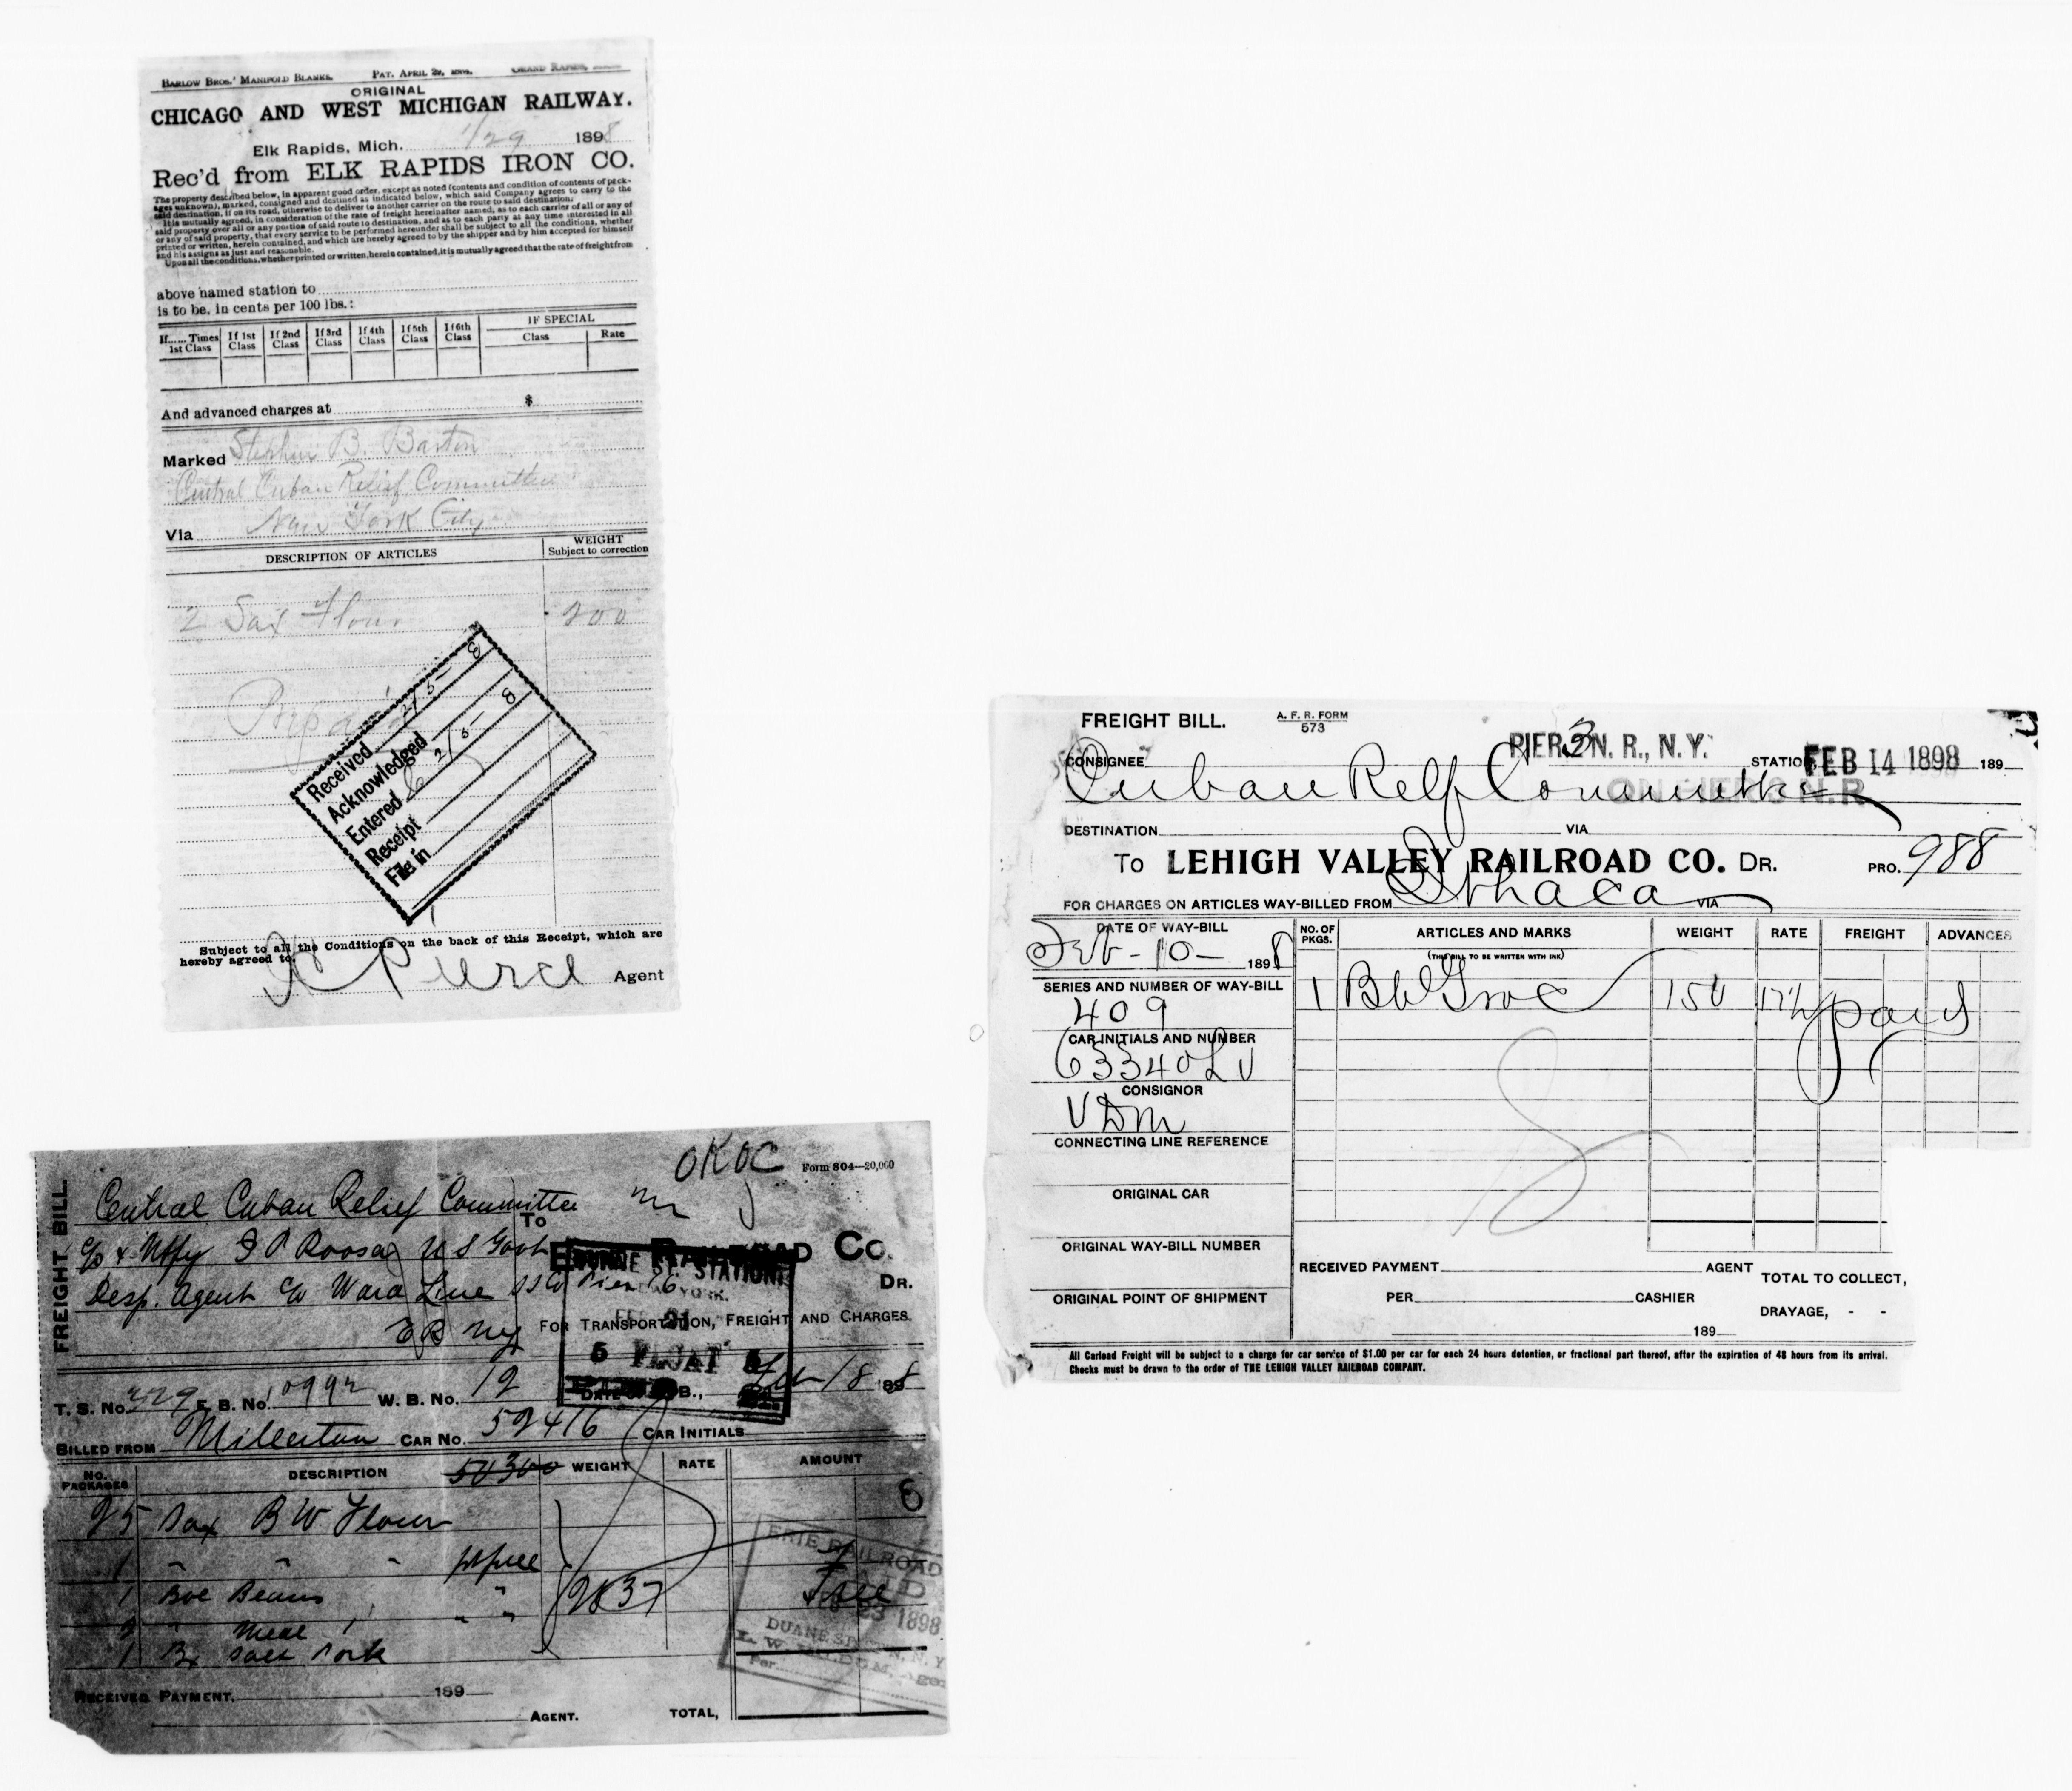 BARLOW BROS.' MANIFOLD BLANKS. PAT. APRIL GRAND RAPIDS,
ORIGINAL
CHICAGO AND WEST MICHIGAN RAILWAY.
Elk Rapids, Mich. 1/29 1898
Rec'd from ELK RAPIDS IRON CO.
The property described below, in apparent good order, except as noted (contents and condition of contents of pack-
ages unknown), marked, consigned and destined as indicated below, which said Company agrees to carry to the
said destination, if on its road, otherwise to deliver to another carrier on the route to said destination.
It is mutually agreed, in consideration of the rate of freight hereinafter named, as to each carrier of all or any of
said property over all or any portion of said route to destination, and as to each party at any time interested in all
or any of said property, that every service to be performed hereunder shall be subject to all the conditions, whether
printed or written, herein contained, and which are hereby agreed to by the shipper and by him accepted for himself
and his assigns as just and reasonable.
Upon all the conditions, whether printed or written, herein contained, it is mutually agreed that the rate of freight from
above named station to
is to be. in cents per 100 lbs.:
If...... Times 1st Class If 1st Class If 2nd Class If 3rd Class If 4th Class If 5th Class If 6th Class IF SPECIAL Class Rate
And advanced charges at $
Marked Stephen B. Barton
Central Cuban Relief Committee
Via New York City
DESCRIPTION OF ARTICLES WEIGHT Subject to correction
2 Sax Flour 200
Prepaid
Received 2/5- 8
Acknowledged 2/5- 8
Entered
Receipt
File in
Subject to all the Conditions on the back of this Receipt, which are
hereby agreed to.
Pierce Agent
FREIGHT BILL. A. F. R. FORM 573
PIER 3 N. R., N.Y. STATION, FEB 14 1898 189
CONSIGNEE
Cuban Relf Committee
ON PIER 3 N.R.
DESTINATION VIA
TO LEHIGH VALLEY RAILROAD CO. DR. PRO. 988
FOR CHARGES ON ARTICLES WAY-BILLED FROM Ithaca VIA
DATE OF WAY-BILL NO. OF PKGS. ARTICLES AND MARKS WEIGHT RATE FREIGHT ADVANCES
Feb-10- 1898 (THIS BILL TO BE WRITTEN WITH INK)
SERIES AND NUMBER OF WAY-BILL 1 Bbl Groc 150 17½ paid
409
CAR INITIALS AND NUMBER
63340 LV
CONSIGNOR
V D M
CONNECTING LINE REFERENCE
ORIGINAL CAR
ORIGINAL WAY-BILL NUMBER
RECEIVED PAYMENT AGENT TOTAL TO COLLECT,
ORIGINAL POINT OF SHIPMENT PER CASHIER
DRAYAGE, - -
189
All Carload Freight will be subject to a charge for car service of $1.00 per car for each 24 hours detention, or fractional part thereof, after the expiration of 48 hours from its arrival.
Checks must be drawn to the order of THE LEHIGH VALLEY RAILROAD COMPANY.
FREIGHT BILL.
OK OC Form 804—20,000
Central Cuban Relief Committee
To
c/o & Ntfy F P Roosa U S Govt RAILROAD CO.
Desp. Agent c/o Ward Line SS Co Pier 16 DR.
E R NY FOR TRANSPORTATION, FREIGHT AND CHARGES
ST. STATION
21
5 5
T. S. No. 329 E. B. No. 10992 W. B. No. 12 DATE B., Feb 18 1898
BILLED FROM Millerton CAR No. 52416 CAR INITIALS
NO. PACKAGES DESCRIPTION 50300 WEIGHT RATE AMOUNT
25 Sax B W Flour
1 " " "
1 Bbl Beans " 2837 Free
2 " Meal " "
1 Bx Salt Pork
ERIE RAILROAD
PAID
23 1898
DUANE ST. N. Y.
Per
RECEIVED PAYMENT, 189
AGENT. TOTAL,